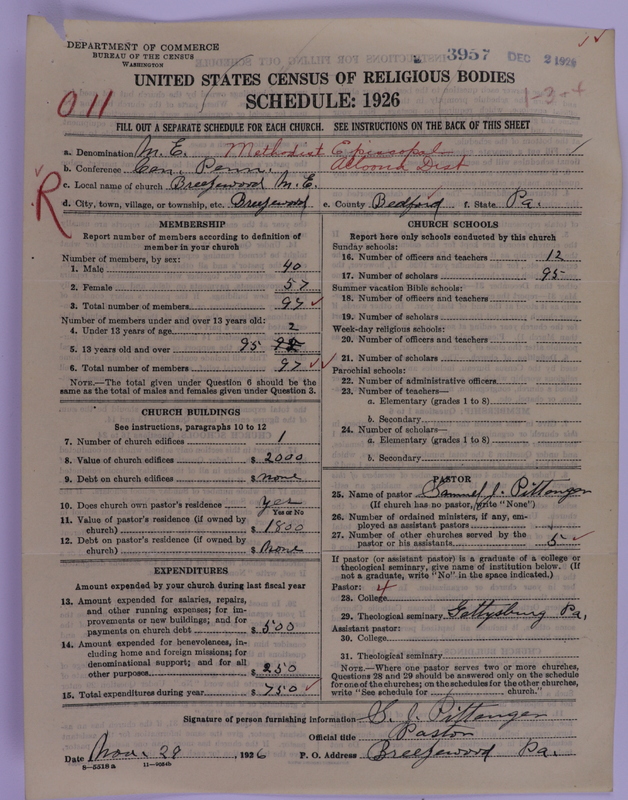 DEPARTMENT OF COMMERCE
BUREAU OF THE CENSUS
WASHINGTON
3957 DEC 2 1926
UNITED STATES CENSUS OF RELIGIOUS BODIES
SCHEDULE: 1926
011
1-3-4
FILL OUT A SEPARATE SCHEDULE FOR EACH CHURCH. SEE INSTRUCTIONS ON THE BACK OF THIS SHEET
a. Denomination M. E. Methodist Episcopal
b. Conference Cen. Penn. Altoona Dist
c. Local name of church Breezewood M. E.
d. City, town, village, or township, etc. Breezewood e. County Bedford f. State Pa.
R
MEMBERSHIP
Report number of members according to definition of member in your church
Number of members, by sex:
1. Male 40
2. Female 57
3. Total number of members 97
Number of members under and over 13 years old:
4. Under 13 years of age 2
5. 13 years old and over 95
6. Total number of members 97
NOTE.—The total given under Question 6 should be the same as the total of males and females given under Question 3.
CHURCH BUILDINGS
See instructions, paragraphs 10 to 12
7. Number of church edifices 1
8. Value of church edifices $ 2000
9. Debt on church edifices $ none
10. Does church own pastor's residence yes
Yes or No
11. Value of pastor's residence (if owned by church) $ 1800
12. Debt on pastor's residence (if owned by church) $ None
EXPENDITURES
Amount expended by your church during last fiscal year
13. Amount expended for salaries, repairs, and other running expenses; for improvements or new buildings; and for payments on church debt $ 500
14. Amount expended for benevolences, including home and foreign missions; for denominational support; and for all other purposes $ 250
15. Total expenditures during year $ 750
CHURCH SCHOOLS
Report here only schools conducted by this church
Sunday schools:
16. Number of officers and teachers 12
17. Number of scholars 95
Summer vacation Bible schools:
18. Number of officers and teachers
19. Number of scholars
Week-day religious schools:
20. Number of officers and teachers
21. Number of scholars
Parochial schools:
22. Number of administrative officers
23. Number of teachers—
a. Elementary (grades 1 to 8)
b. Secondary
24. Number of scholars—
a. Elementary (grades 1 to 8)
b. Secondary
PASTOR
25. Name of pastor Samuel J. Pittenger
(If church has no pastor, write "None")
26. Number of ordained ministers, if any, employed as assistant pastors
27. Number of other churches served by the pastor or his assistants 5
If pastor (or assistant pastor) is a graduate of a college or theological seminary, give name of institution below. (If not a graduate, write "No" in the space indicated.)
Pastor: 4
28. College
29. Theological seminary Gettysburg Pa.
Assistant pastor:
30. College
31. Theological seminary
NOTE.—Where one pastor serves two or more churches, Questions 28 and 29 should be answered only on the schedule for one of the churches; on the schedules for the other churches, write "See schedule for church."
Signature of person furnishing information S. J. Pittenger
Official title Pastor
Date Nov. 29, 1926 P. O. Address Breezewood Pa.
8—5518 a